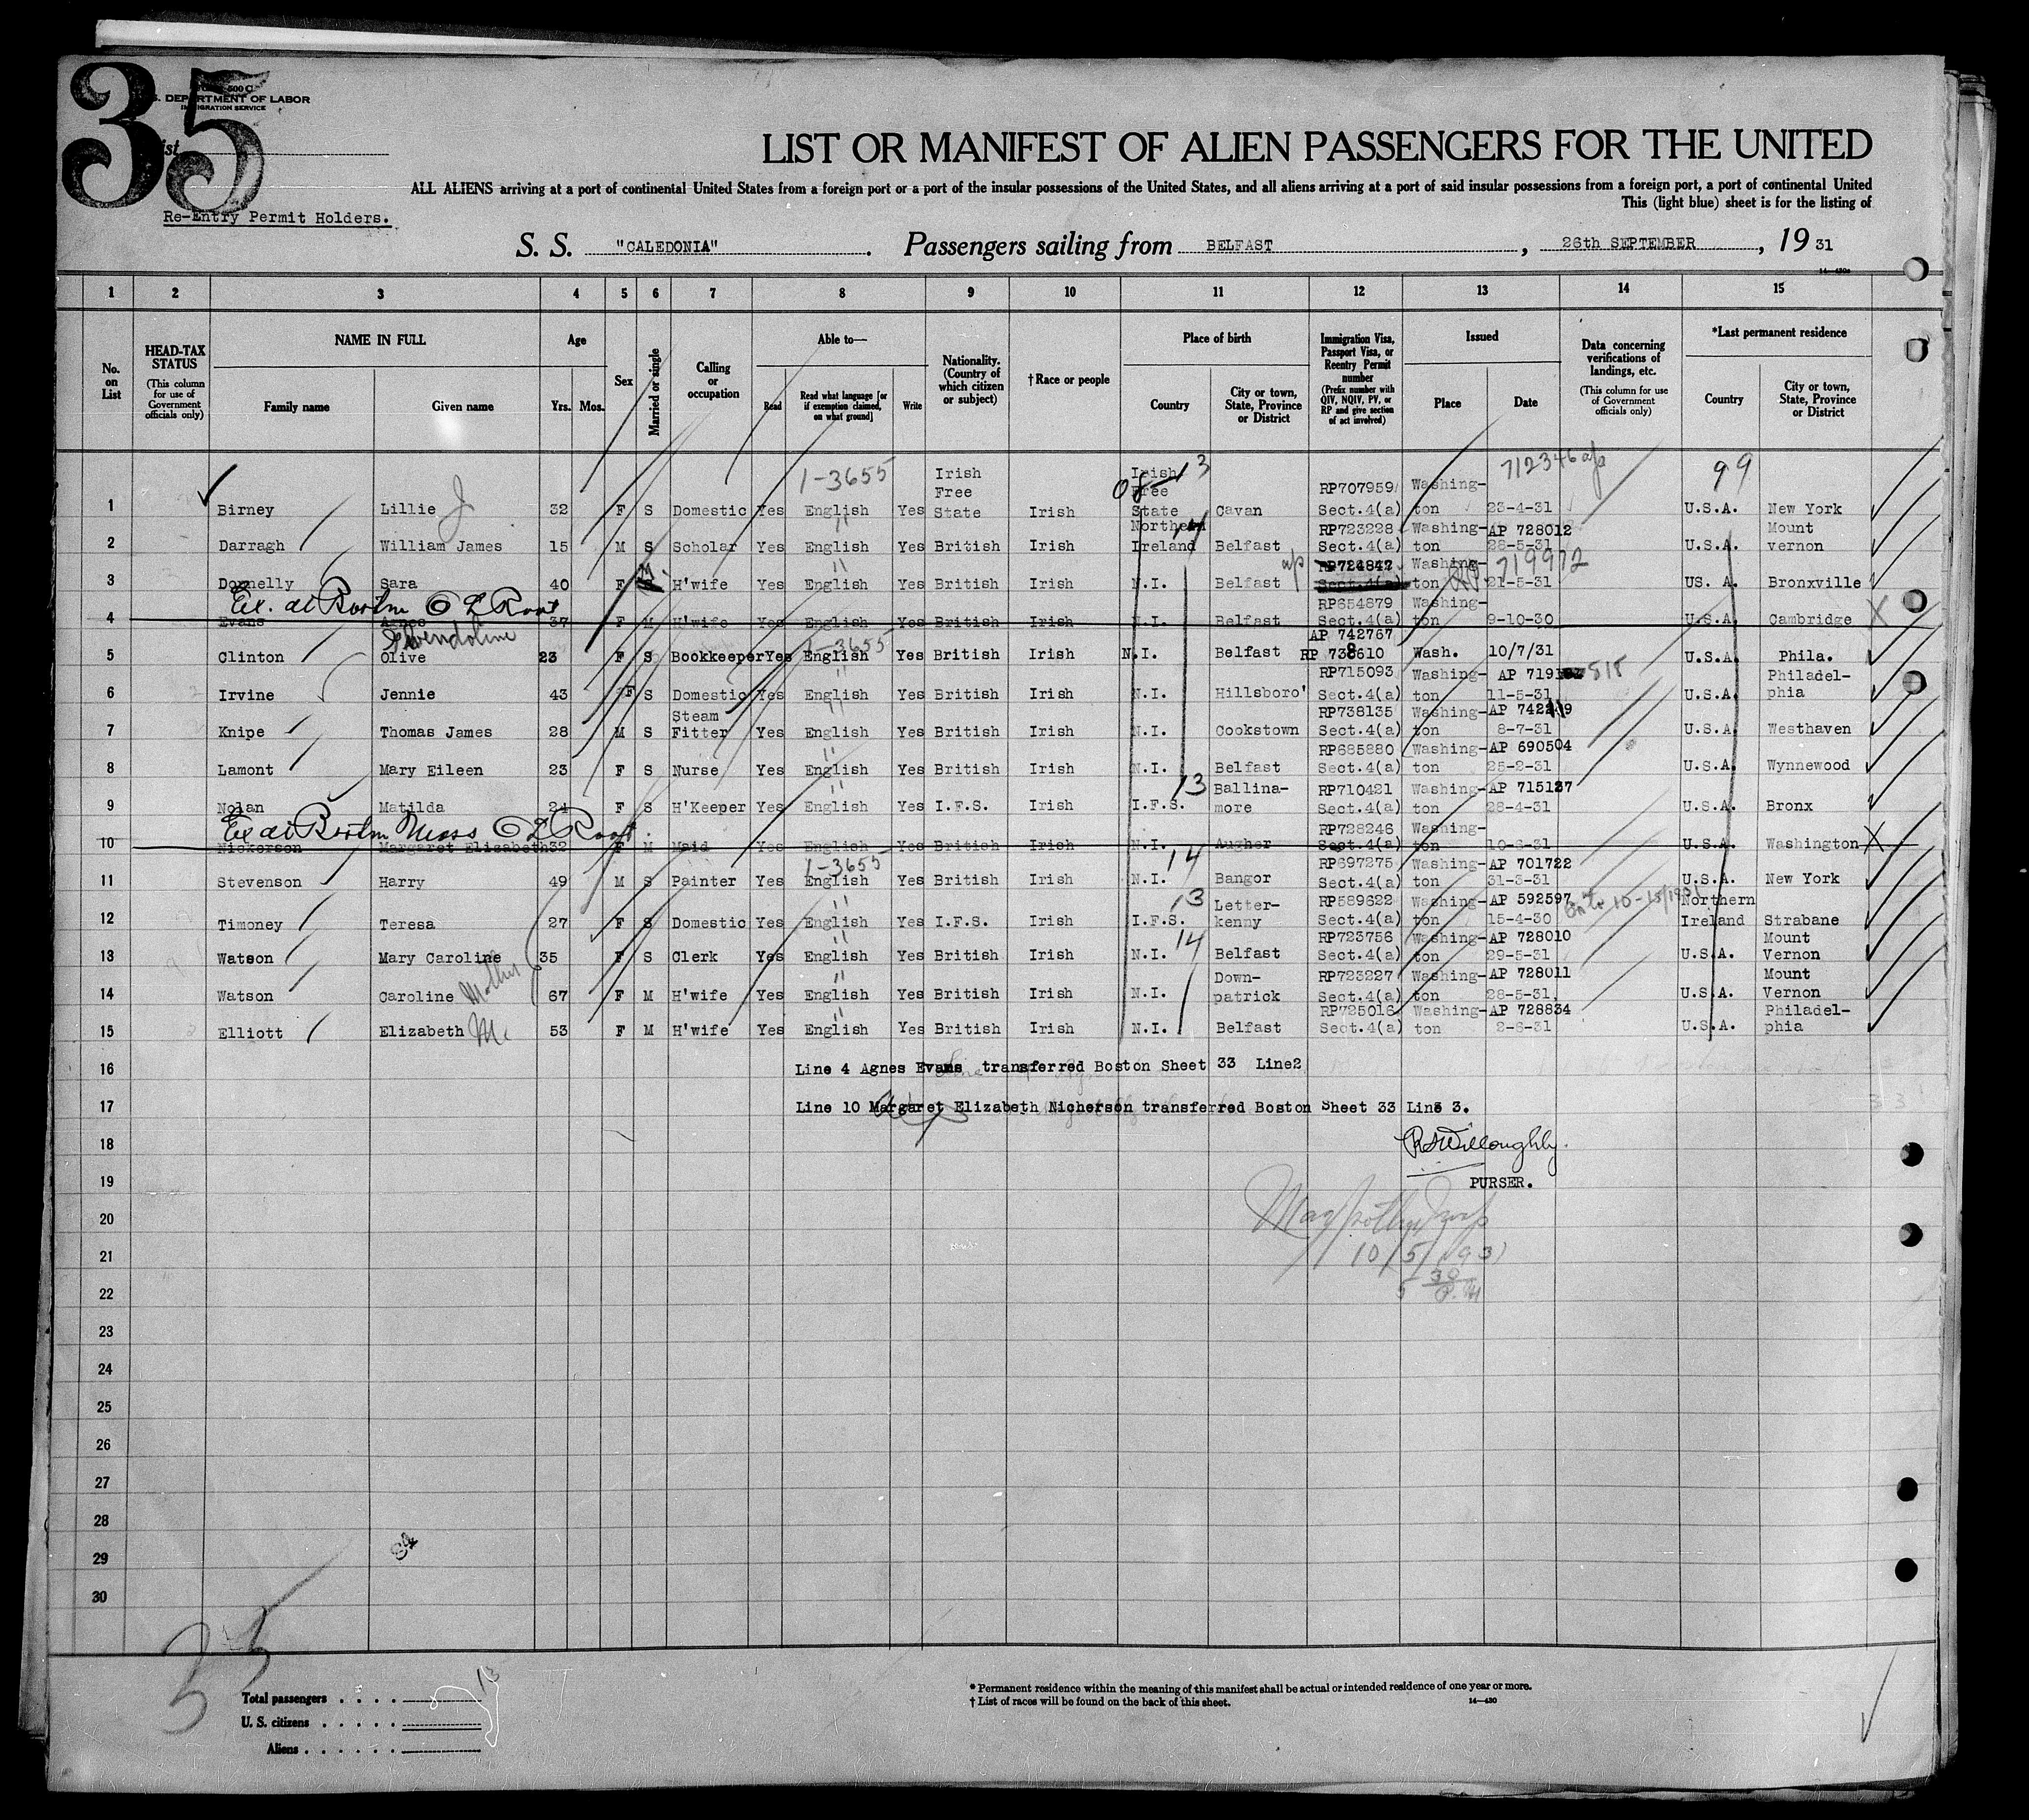 35
500 C
U.S. DEPARTMENT OF LABOR
IMMIGRATION SERVICE
List
Re-Entry Permit Holders.
LIST OR MANIFEST OF ALIEN PASSENGERS FOR THE UNITED
ALL ALIENS arriving at a port of continental United States from a foreign port or a port of the insular possessions of the United States, and all aliens arriving at a port of said insular possessions from a foreign port, a port of continental United
This (light blue) sheet is for the listing of
S. S. "CALEDONIA". Passengers sailing from BELFAST, 26th SEPTEMBER, 19 31
14—430a
1 2 3 4 5 6 7 8 9 10 11 12 13 14 15
No. on List
HEAD-TAX STATUS (This column for use of Government officials only)
NAME IN FULL Family name Given name
Age Yrs. Mos.
Sex
Married or single
Calling or occupation
Able to— Read Read what language [or if exemption claimed, on what ground] Write
Nationality. (Country of which citizen or subject)
†Race or people
Place of birth Country City or town, State, Province or District
Immigration Visa, Passport Visa, or Reentry Permit number (Prefix number with QIV, NQIV, PV, or RP and give section of act involved)
Issued Place Date
Data concerning verifications of landings, etc. (This column for use of Government officials only)
*Last permanent residence Country City or town, State, Province or District
1-3655 13 712346 a/p 99
1 Birney Lillie J 32 F S Domestic Yes English Yes Irish Free State Irish Irish Free State Cavan RP707959 Sect.4(a) Washing-ton 23-4-31 U.S.A. New York
2 Darragh William James 15 M S Scholar Yes English Yes British Irish Northern Ireland Belfast RP723228 Sect.4(a) Washing-ton AP 728012 28-5-31 U.S.A. Mount vernon
3 Donnelly Sara 40 F M H'wife Yes English Yes British Irish N.I. Belfast a/p RP724842 Sect.4(a) Washing-ton 21-5-31 719972 US. A. Bronxville
Ex. at Boston O L Root
4 Evans Agnes 37 F M H'wife Yes English Yes British Irish N.I. Belfast RP654879 Sect.4(a) Washing-ton 9-10-30 U.S.A. Cambridge X
Gwendoline 1-3655 AP 742767
5 Clinton Olive 23 F S Bookkeeper Yes English Yes British Irish N.I. Belfast RP 738610 Wash. 10/7/31 U.S.A. Phila.
6 Irvine Jennie 43 F S Domestic Yes English Yes British Irish N.I. Hillsboro' RP715093 Sect.4(a) Washing-ton AP 719 515 11-5-31 U.S.A. Philadel-phia
7 Knipe Thomas James 28 M S Steam Fitter Yes English Yes British Irish N.I. Cookstown RP738135 Sect.4(a) Washing-ton 8-7-31 U.S.A. Westhaven
8 Lamont Mary Eileen 23 F S Nurse Yes English Yes British Irish N.I. Belfast RP685880 Sect.4(a) Washing-ton AP 690504 25-2-31 U.S.A. Wynnewood
9 Nolan Matilda 24 F S H'Keeper Yes English Yes I.F.S. Irish 13 I.F.S. Ballina-more RP710421 Sect.4(a) Washing-ton AP 715127 28-4-31 U.S.A. Bronx
Ex at Boston Mass O L Root
10 Nickerson Margaret Elizabeth 32 F M Maid Yes English Yes British Irish N.I. Augher RP728246 Sect.4(a) Washing-ton 10-6-31 U.S.A. Washington X
1-3655 14
11 Stevenson Harry 49 M S Painter Yes English Yes British Irish N.I. Bangor RP697275 Sect.4(a) Washing-ton AP 701722 31-3-31 U.S.A. New York
12 Timoney Teresa 27 F S Domestic Yes English Yes I.F.S. Irish 13 I.F.S. Letter-kenny RP589622 Sect.4(a) Washing-ton AP 592597 15-4-30 10-15/1931 Northern Ireland Strabane
13 Watson Mary Caroline 35 F S Clerk Yes English Yes British Irish 14 N.I. Belfast RP723756 Sect.4(a) Washing-ton AP 728010 29-5-31 U.S.A. Mount Vernon
14 Watson Caroline Mother 67 F M H'wife Yes English Yes British Irish N.I. Down-patrick RP723227 Sect.4(a) Washing-ton AP 728011 28-5-31 U.S.A. Mount Vernon
15 Elliott Elizabeth Mc 53 F M H'wife Yes English Yes British Irish N.I. Belfast RP725016 Sect.4(a) Washing-ton AP 728834 2-6-31 U.S.A. Philadel-phia
16 Line 4 Agnes Evans transferred Boston Sheet 33 Line2
17 Line 10 Margaret Elizabeth Nicherson transferred Boston Sheet 33 Line 3.
18 RSWilloughby.
19 PURSER.
20
21 10/5/1931
22 5 30 P.M
23
24
25
26
27
28
29
30
35
Total passengers . . . . 13
U. S. citizens . . . . .
Aliens . . . . . .
* Permanent residence within the meaning of this manifest shall be actual or intended residence of one year or more.
† List of races will be found on the back of this sheet.
14—430